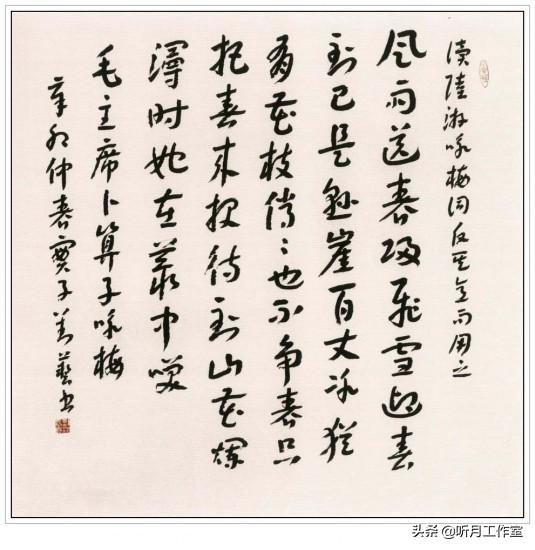 读陸游咏梅词反其意而用之
风雨送春归飛雪迎春
到已是悬崖百丈冰犹
有花枝俏々也不争春只
把春来报待到山花烂
漫时她在丛中笑
毛主席卜算子咏梅
辛仲春子艺书
头条 @听月工作室